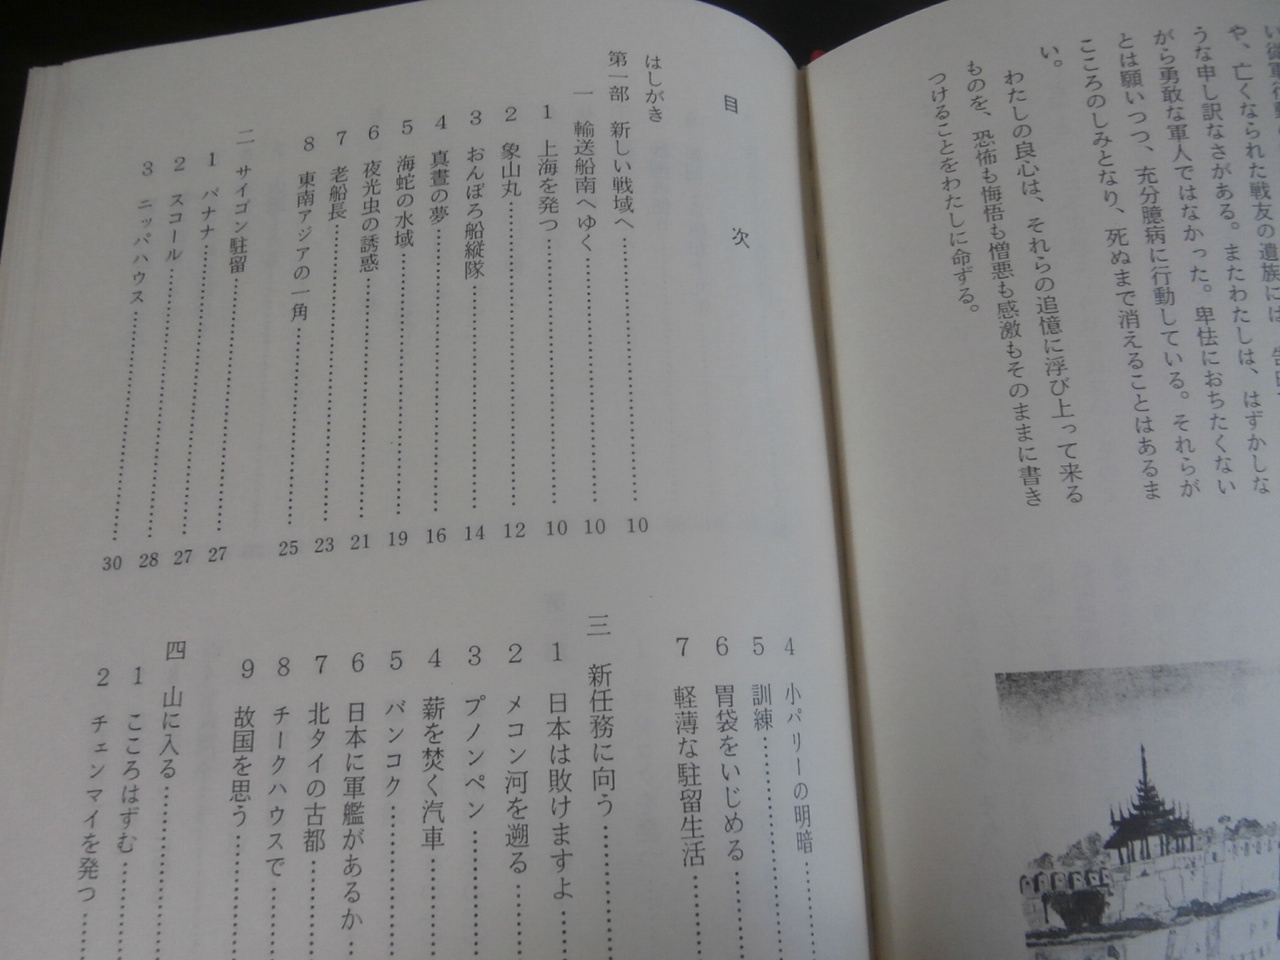 や、亡くなられた戦友の遺族には、
うな申し訳なさがある。またわたしは、はずかしな
がら勇敢な軍人ではなかった。卑怯におちたくない
とは願いつつ、充分臆病に行動している。それらが
こころのしみとなり、死ぬまで消えることはあるま
い。
わたしの良心は、それらの追憶に浮び上って来る
ものを、恐怖も悔悟も憎悪も感激もそのままに書き
つけることをわたしに命ずる。
目次
はしがき
第一部 新しい戦域へ……………10
一 輸送船南へゆく……………10
1 上海を発つ……………10
2 象山丸……………12
3 おんぼろ船縦隊……………14
4 真晝の夢……………16
5 海蛇の水域……………19
6 夜光虫の誘惑……………21
7 老船長……………23
8 東南アジアの一角……………25
二 サイゴン駐留……………27
1 バナナ……………27
2 スコール……………28
3 ニッパハウス……………30
4 小パリーの明暗……………
5 訓練……………
6 胃袋をいじめる……………
7 軽薄な駐留生活
三 新任務に向う……………
1 日本は敗けますよ……………
2 メコン河を遡る……………
3 プノンペン……………
4 薪を焚く汽車……………
5 バンコク……………
6 日本に軍艦があるか……………
7 北タイの古都……………
8 チークハウスで……………
9 故国を思う……………
四 山に入る……………
1 こころはずむ……………
2 チェンマイを発つ……………